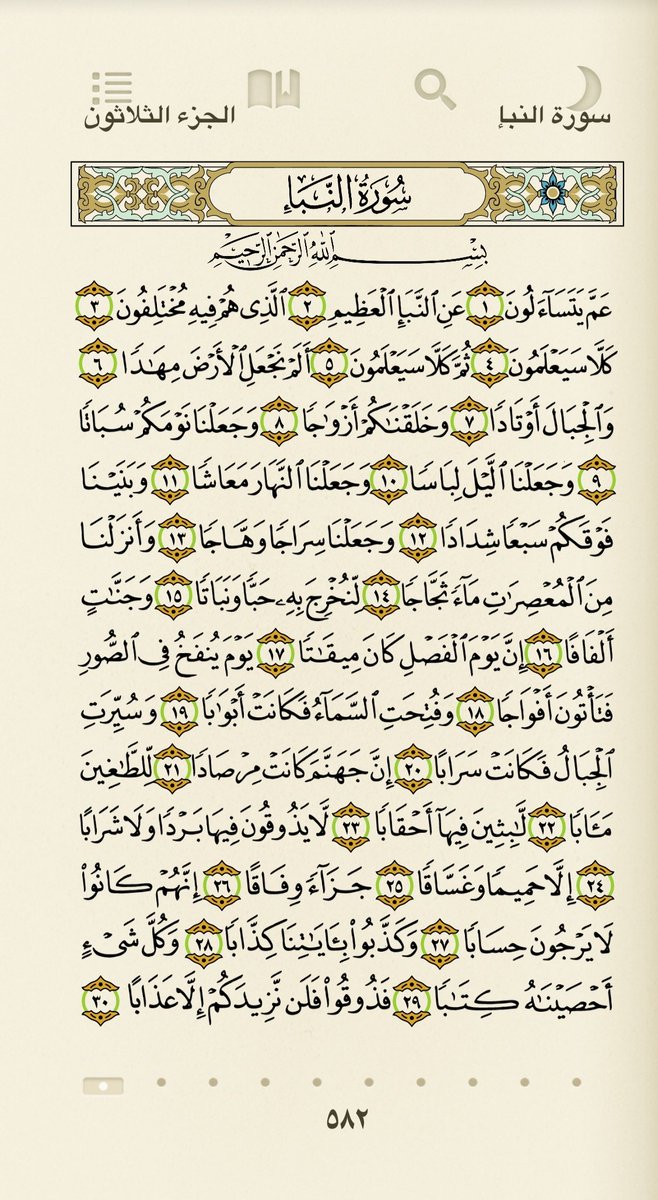 سورة النبإ الجزء الثلاثون
سُورَةُ النَّبَإِ
بِسْمِ ٱللَّهِ ٱلرَّحْمَٰنِ ٱلرَّحِيمِ
عَمَّ يَتَسَآءَلُونَ ١ عَنِ ٱلنَّبَإِ ٱلْعَظِيمِ ٢ ٱلَّذِى هُمْ فِيهِ مُخْتَلِفُونَ ٣
كَلَّا سَيَعْلَمُونَ ٤ ثُمَّ كَلَّا سَيَعْلَمُونَ ٥ أَلَمْ نَجْعَلِ ٱلْأَرْضَ مِهَٰدًا ٦
وَٱلْجِبَالَ أَوْتَادًا ٧ وَخَلَقْنَٰكُمْ أَزْوَٰجًا ٨ وَجَعَلْنَا نَوْمَكُمْ سُبَاتًا
٩ وَجَعَلْنَا ٱلَّيْلَ لِبَاسًا ١٠ وَجَعَلْنَا ٱلنَّهَارَ مَعَاشًا ١١ وَبَنَيْنَا
فَوْقَكُمْ سَبْعًا شِدَادًا ١٢ وَجَعَلْنَا سِرَاجًا وَهَّاجًا ١٣ وَأَنزَلْنَا
مِنَ ٱلْمُعْصِرَٰتِ مَآءً ثَجَّاجًا ١٤ لِّنُخْرِجَ بِهِۦ حَبًّا وَنَبَاتًا ١٥ وَجَنَّٰتٍ
أَلْفَافًا ١٦ إِنَّ يَوْمَ ٱلْفَصْلِ كَانَ مِيقَٰتًا ١٧ يَوْمَ يُنفَخُ فِى ٱلصُّورِ
فَتَأْتُونَ أَفْوَاجًا ١٨ وَفُتِحَتِ ٱلسَّمَآءُ فَكَانَتْ أَبْوَٰبًا ١٩ وَسُيِّرَتِ
ٱلْجِبَالُ فَكَانَتْ سَرَابًا ٢٠ إِنَّ جَهَنَّمَ كَانَتْ مِرْصَادًا ٢١ لِّلطَّٰغِينَ
مَـَٔابًا ٢٢ لَّٰبِثِينَ فِيهَآ أَحْقَابًا ٢٣ لَّا يَذُوقُونَ فِيهَا بَرْدًا وَلَا شَرَابًا
٢٤ إِلَّا حَمِيمًا وَغَسَّاقًا ٢٥ جَزَآءً وِفَاقًا ٢٦ إِنَّهُمْ كَانُوا۟
لَا يَرْجُونَ حِسَابًا ٢٧ وَكَذَّبُوا۟ بِـَٔايَٰتِنَا كِذَّابًا ٢٨ وَكُلَّ شَىْءٍ
أَحْصَيْنَٰهُ كِتَٰبًا ٢٩ فَذُوقُوا۟ فَلَن نَّزِيدَكُمْ إِلَّا عَذَابًا ٣٠
٥٨٢